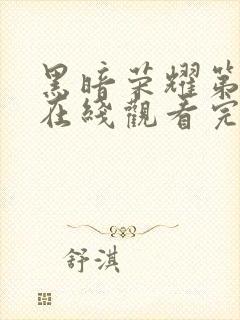 黑暗荣耀第
在綫觀看完
舒淇